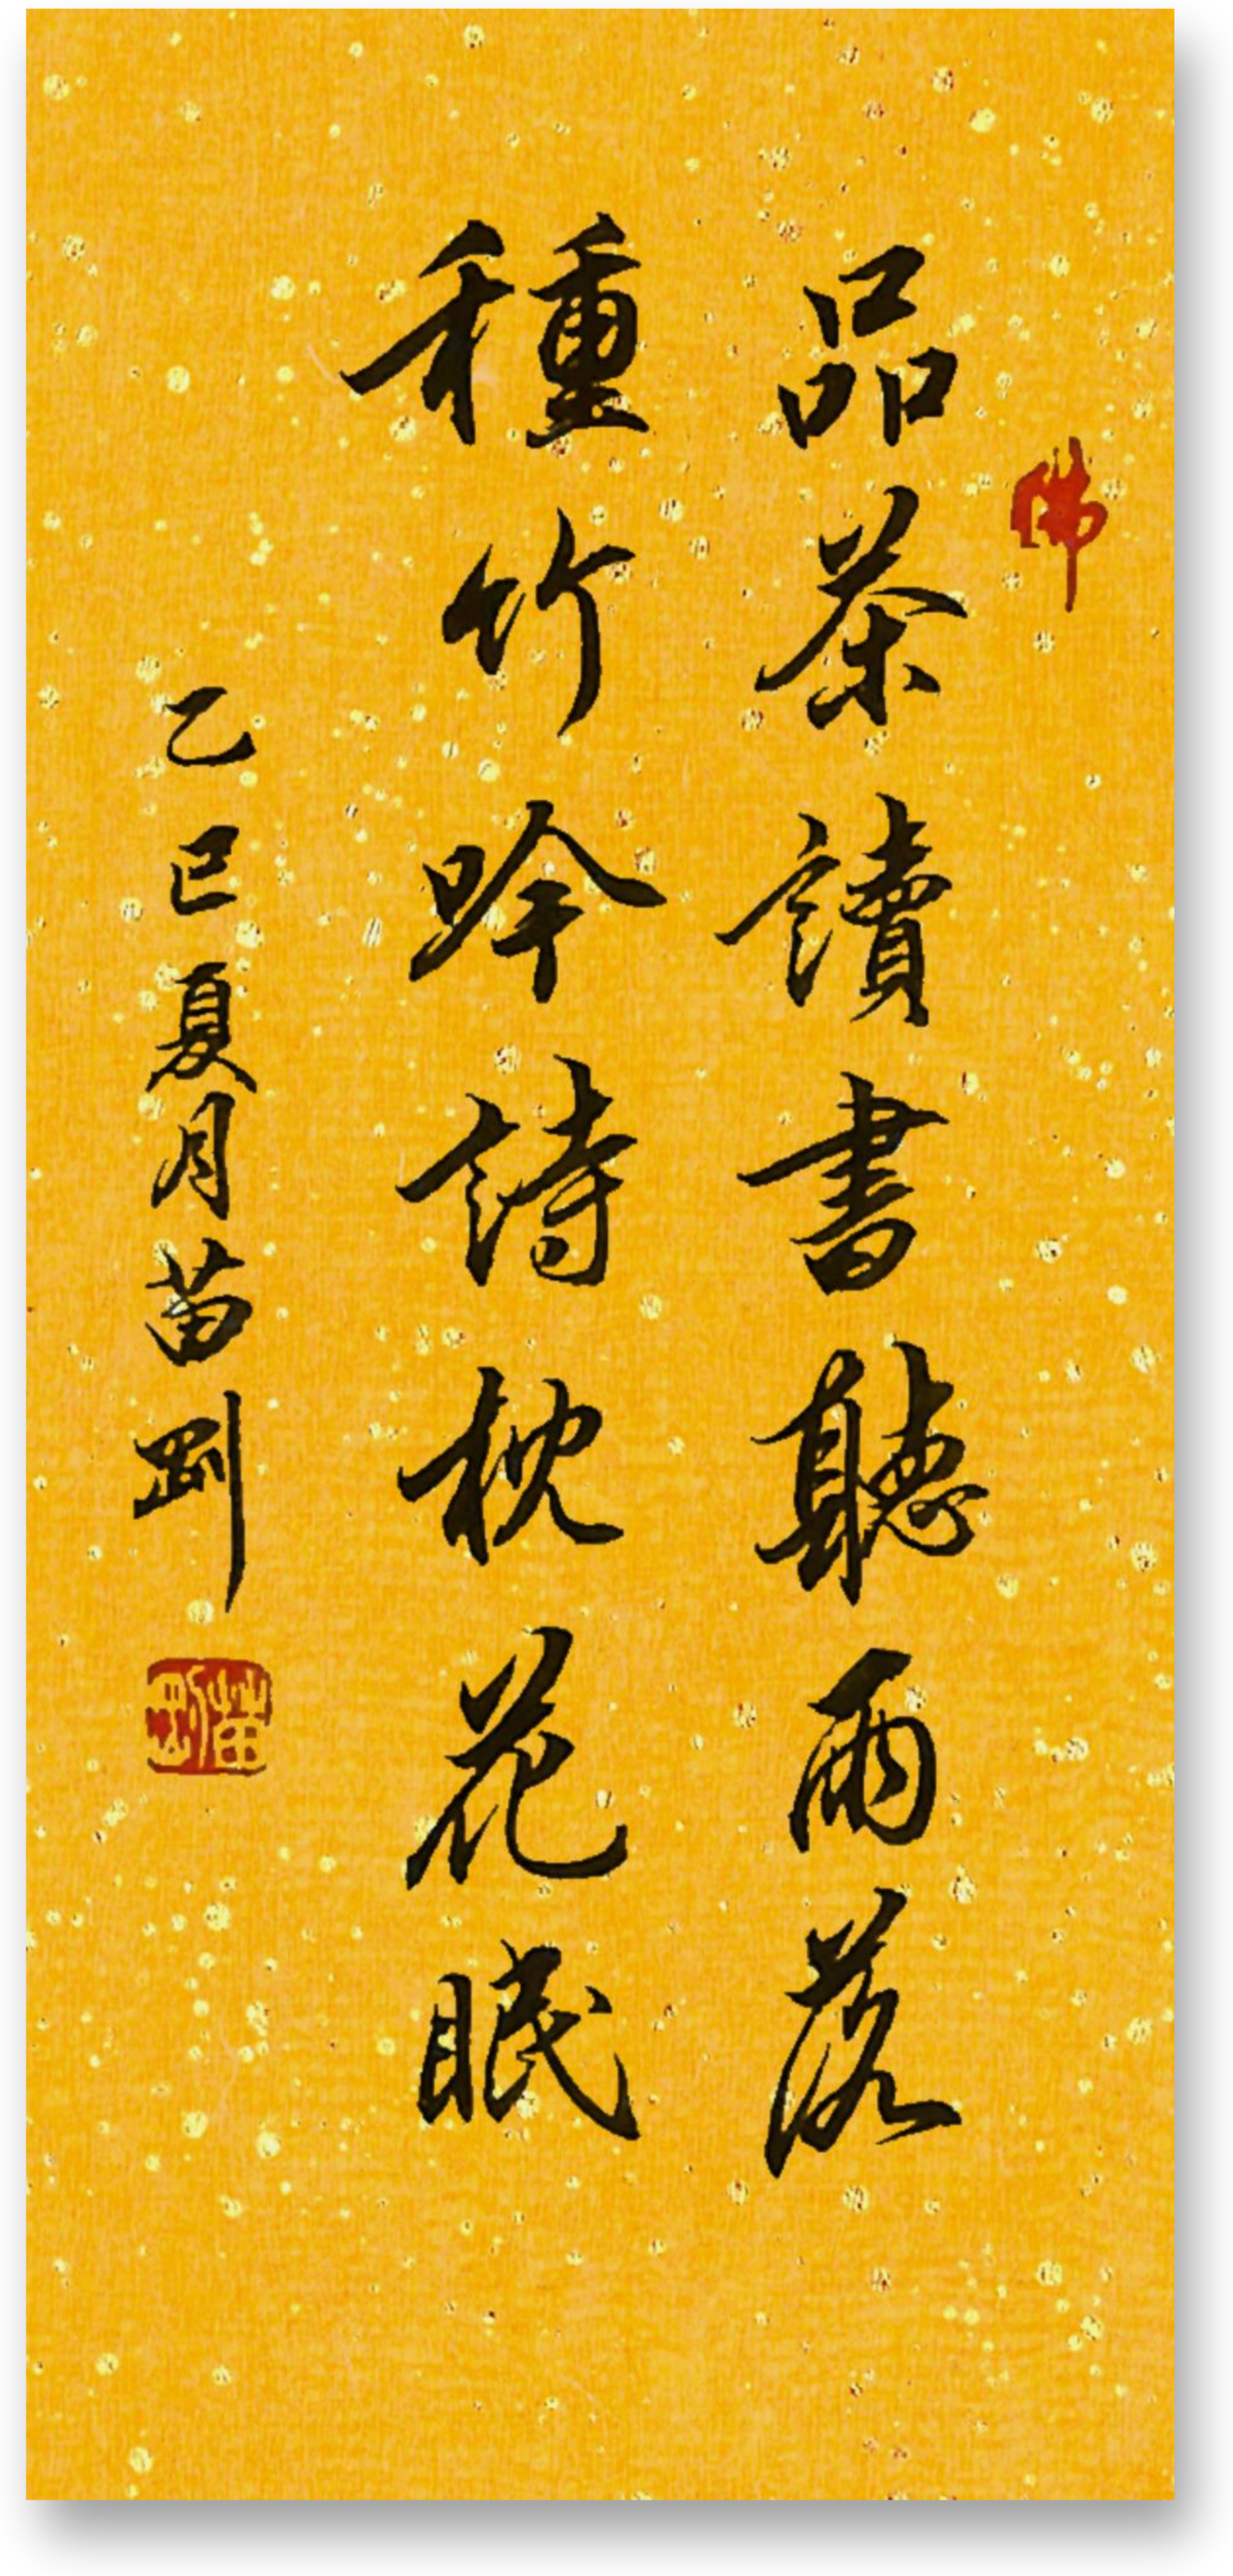 佛
品茶讀書聽雨落
種竹吟詩枕花眠
乙巳夏月苗剛